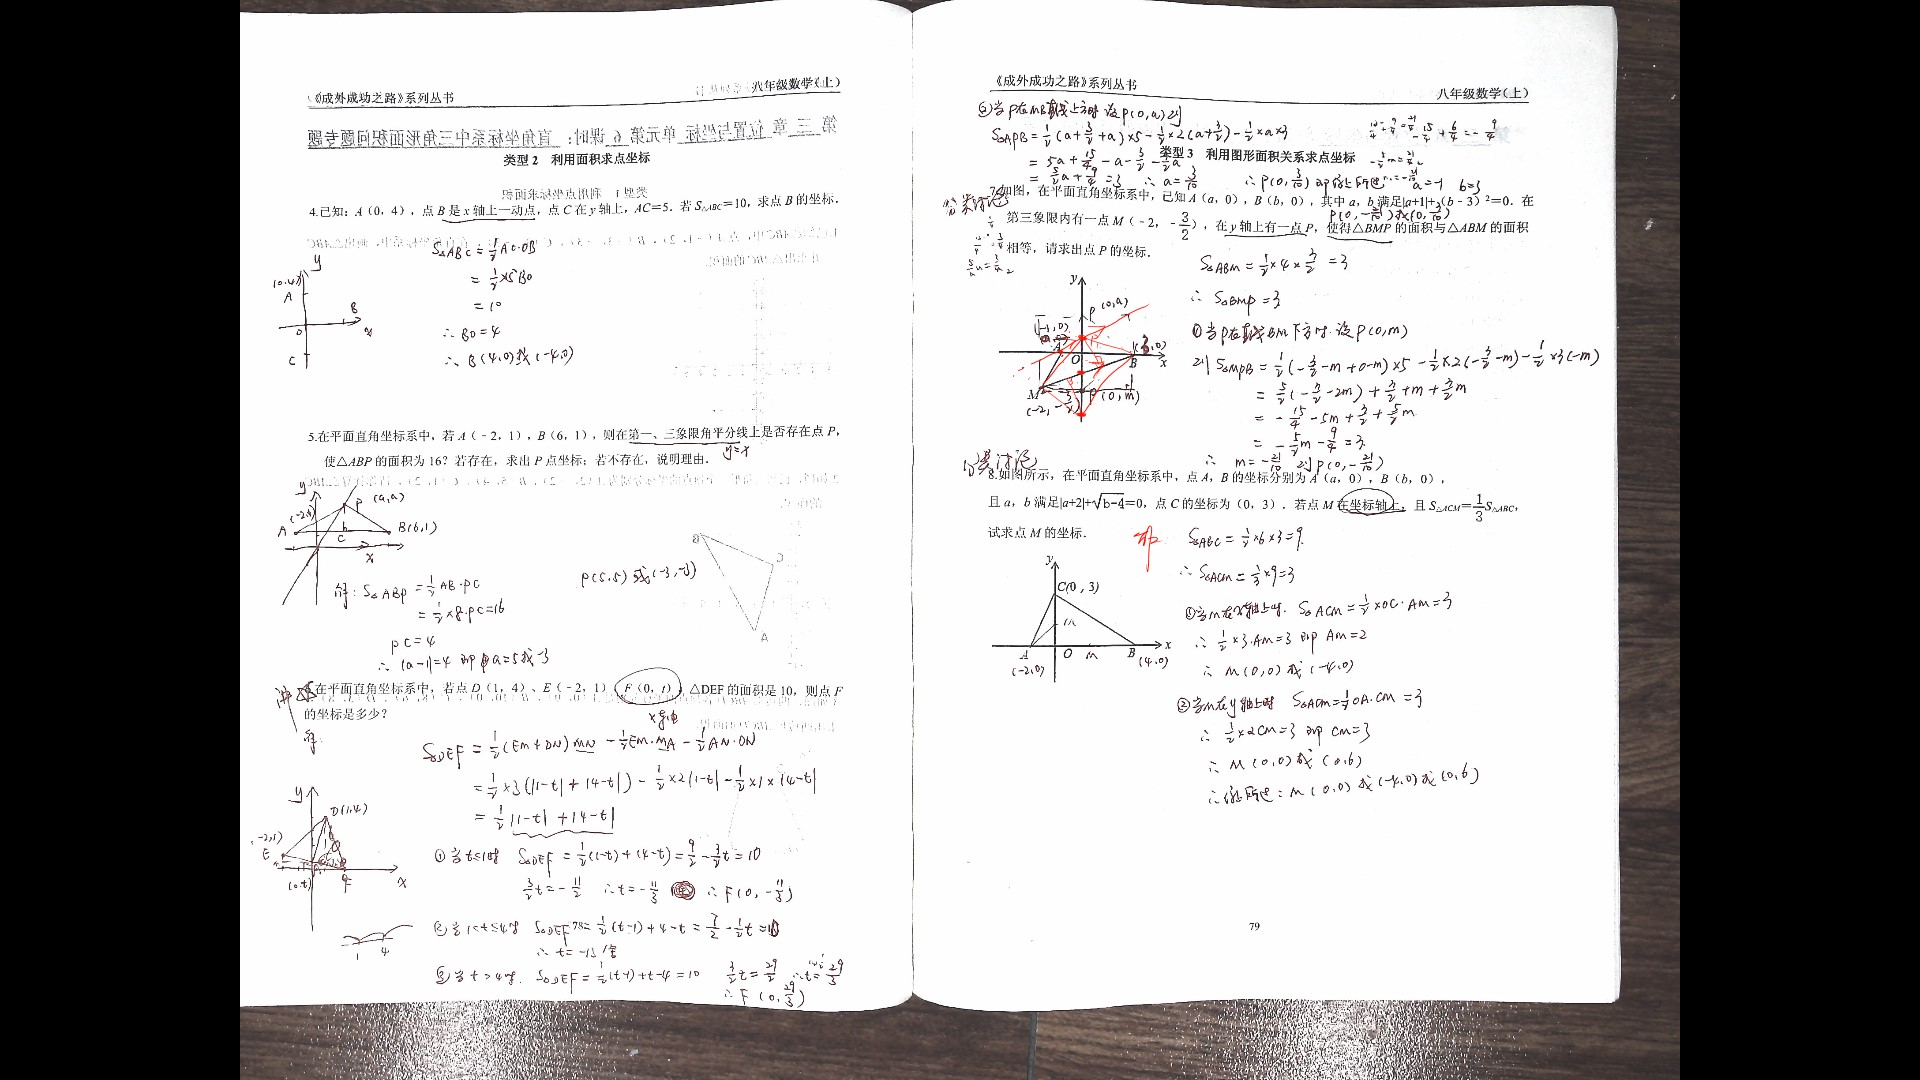 《成外成功之路》系列丛书
八年级数学(上)
类型 2 利用面积求点坐标
4.已知:A(0,4),点 B 是 x 轴上一动点,点 C 在 y 轴上,AC=5.若 S△ABC=10,求点 B 的坐标.
S△ABC=½AC·OB
=½×5BO
=10
∴BO=4
∴B(4,0)或(-4,0)
y
(0,4)
A
B
O
x
C
5.在平面直角坐标系中,若 A(-2,1),B(6,1),则在第一、三象限角平分线上是否存在点 P,
y=x
使△ABP 的面积为 16?若存在,求出 P 点坐标;若不存在,说明理由.
y
P (a,a)
(-2,1)
A
h
B(6,1)
C
x
P(5,5)或(-3,-3)
解:S△ABP=½AB·PC
=½×8·PC=16
PC=4
∴|a-1|=4 即 a=5或-3
在平面直角坐标系中,若点 D(1,4)、E(-2,1)、F(0,t),△DEF 的面积是 10,则点 F
的坐标是多少?
解:
S△DEF=½(EM+DN)MN-½EM·MA-½AN·DN
=½×3(|1-t|+|4-t|)-½×2|1-t|-½×1×|4-t|
=½|1-t|+|4-t|
y
D(1,4)
-2,1)
E
(0,t)
F
x
①当t≤1时 S△DEF=½(1-t)+(4-t)=9/2-3/2t=10
3/2t=-11/2 ∴t=-11/3 ∴F(0,-11/3)
②当1<t≤4时 S△DEF=½(t-1)+4-t=7/2-½t=10
∴t=-13
1 4
③当t>4时. S△DEF=½(t-1)+t-4=10 3/2t=29/2 ∴t=29/3
∴F(0,29/3)
《成外成功之路》系列丛书
八年级数学(上)
②当P在MB直线上方时 设P(0,a)则
S△APB=½(a+3/2+a)×5-½×2(a+3/2)-½×a×3
=5a+15/4-a-3/2-3/2a
=5/2a+9/4=3 ∴a=3/10 ∴P(0,3/10) 即综上所述
a=-1 b=3
P(0,-21/10)或(0,3/10)
类型 3 利用图形面积关系求点坐标
分类讨论
7.如图,在平面直角坐标系中,已知 A(a,0),B(b,0),其中 a,b 满足|a+1|+(b-3)²=0.在
第三象限内有一点 M(-2,-3/2),在 y 轴上有一点 P,使得△BMP 的面积与△ABM 的面积
相等,请求出点 P 的坐标.
S△ABM=½×4×3/2=3
∴S△BMP=3
①当P在直线BM下方时.设P(0,m)
则S△MPB=½(-3/2-m+0-m)×5-½×2(-3/2-m)-½×3(-m)
=5/2(-3/2-2m)+3/2+m+3/2m
=-15/4-5m+3/2+5/2m
=-5/2m-9/4=3
∴m=-21/10 则P(0,-21/10)
y
P (0,a)
(-1,0)
A
O
(3,0)
B
x
M
(-2,-3/2)
P(0,m)
分类讨论
8.如图所示,在平面直角坐标系中,点 A,B 的坐标分别为 A(a,0),B(b,0),
且 a,b 满足|a+2|+√b-4=0,点 C 的坐标为(0,3).若点 M 在坐标轴上,且 S△ACM=1/3S△ABC,
试求点 M 的坐标.
S△ABC=½×6×3=9.
∴S△ACM=⅓×9=3
①当M在x轴上时. S△ACM=½×OC·AM=3
∴½×3·AM=3 即 AM=2
∴M(0,0)或(-4,0)
②当M在y轴上时 S△ACM=½OA·CM=3
∴½×2CM=3 即 CM=3
∴M(0,0)或(0,6)
∴综上所述:M(0,0)或(-4,0)或(0,6)
y
C(0,3)
M
A
O
M
B
x
(-2,0)
(4,0)
79